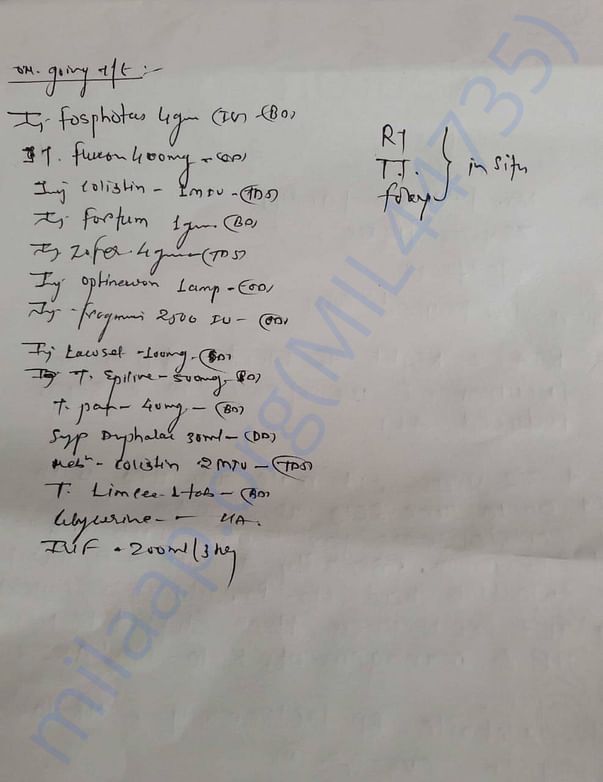 on. going t/t :-
Inj fosphotas 4gm (IV) - (BD)
T. flucon 400mg - (OD)
Inj Colistin - 1 MIU - (TDS)
Inj fortum 1gm (BD)
Inj Zofer 4gm - (TDS)
Inj optineuron 1 amp - (OD)
Inj - fragmin 2500 IU - (OD)
Inj Lacoset - 100mg - (BD)
T. Epilive - 500mg - (BD)
T. pan - 40mg - (BD)
Syp Duphalac 30ml - (BD)
Neb - Colistin 2 MIU - (TDS)
T. Limcee - 1 tab - (BD)
Glycerine - - LA.
IVF - 200ml / 3 hrg
RT
T.T.
foley
} in situ
milaap.org(MIL44735)